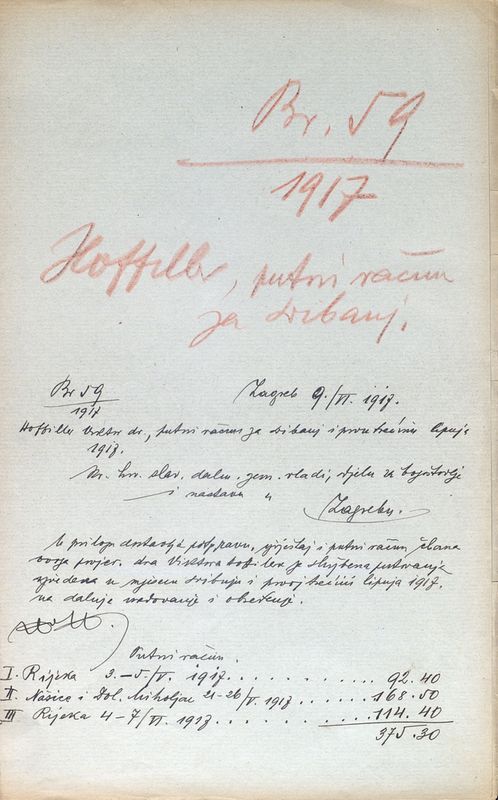 Br. 59
1917
Hoffiller, putni račun
za svibanj.
Br 59
1917
Zagreb 9./VI. 1917.
Hoffiller Viktor dr., putni račun za svibanj i prvu trećinu lipnja
1917.
Kr. hrv. slav. dalm. zem. vladi, odjelu za bogoštovlje
i nastavu u
Zagrebu.
U prilogu dostavlja potpisani, izvještaj i putni račun,
dra Viktora Hoffillera za službena putovanja
izvedena u mjesecu svibnju i prvoj trećini lipnja 1917.
na daljnje uredovanje i
Putni račun.
I. Rijeka 2.–5/V. 1917. . . . . . . . . . . . 92.40
II Našice i Dol. Miholjac 21–26/V. 1917 . . . . . . 168.50
III Rijeka 4–7/VI. 1917 . . . . . . . . . . 114.40
375.30